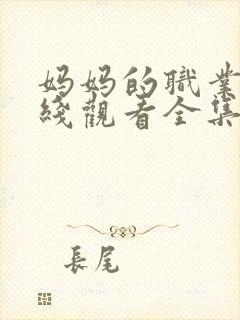 妈妈的職業
綫觀看全集
長尾